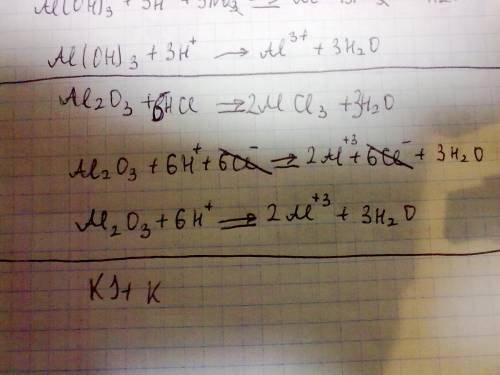 Al(OH)3 + 3H + 3NO3 ⇌
Al(OH)3 + 3H⁺ → Al³⁺ + 3H2O
Al2O3 + 6HCl ⇌ 2AlCl3 + 3H2O
Al2O3 + 6H⁺ + 6Cl⁻ ⇌ 2Al⁺³ + 6Cl⁻ + 3H2O
Al2O3 + 6H⁺ ⇌ 2Al⁺³ + 3H2O